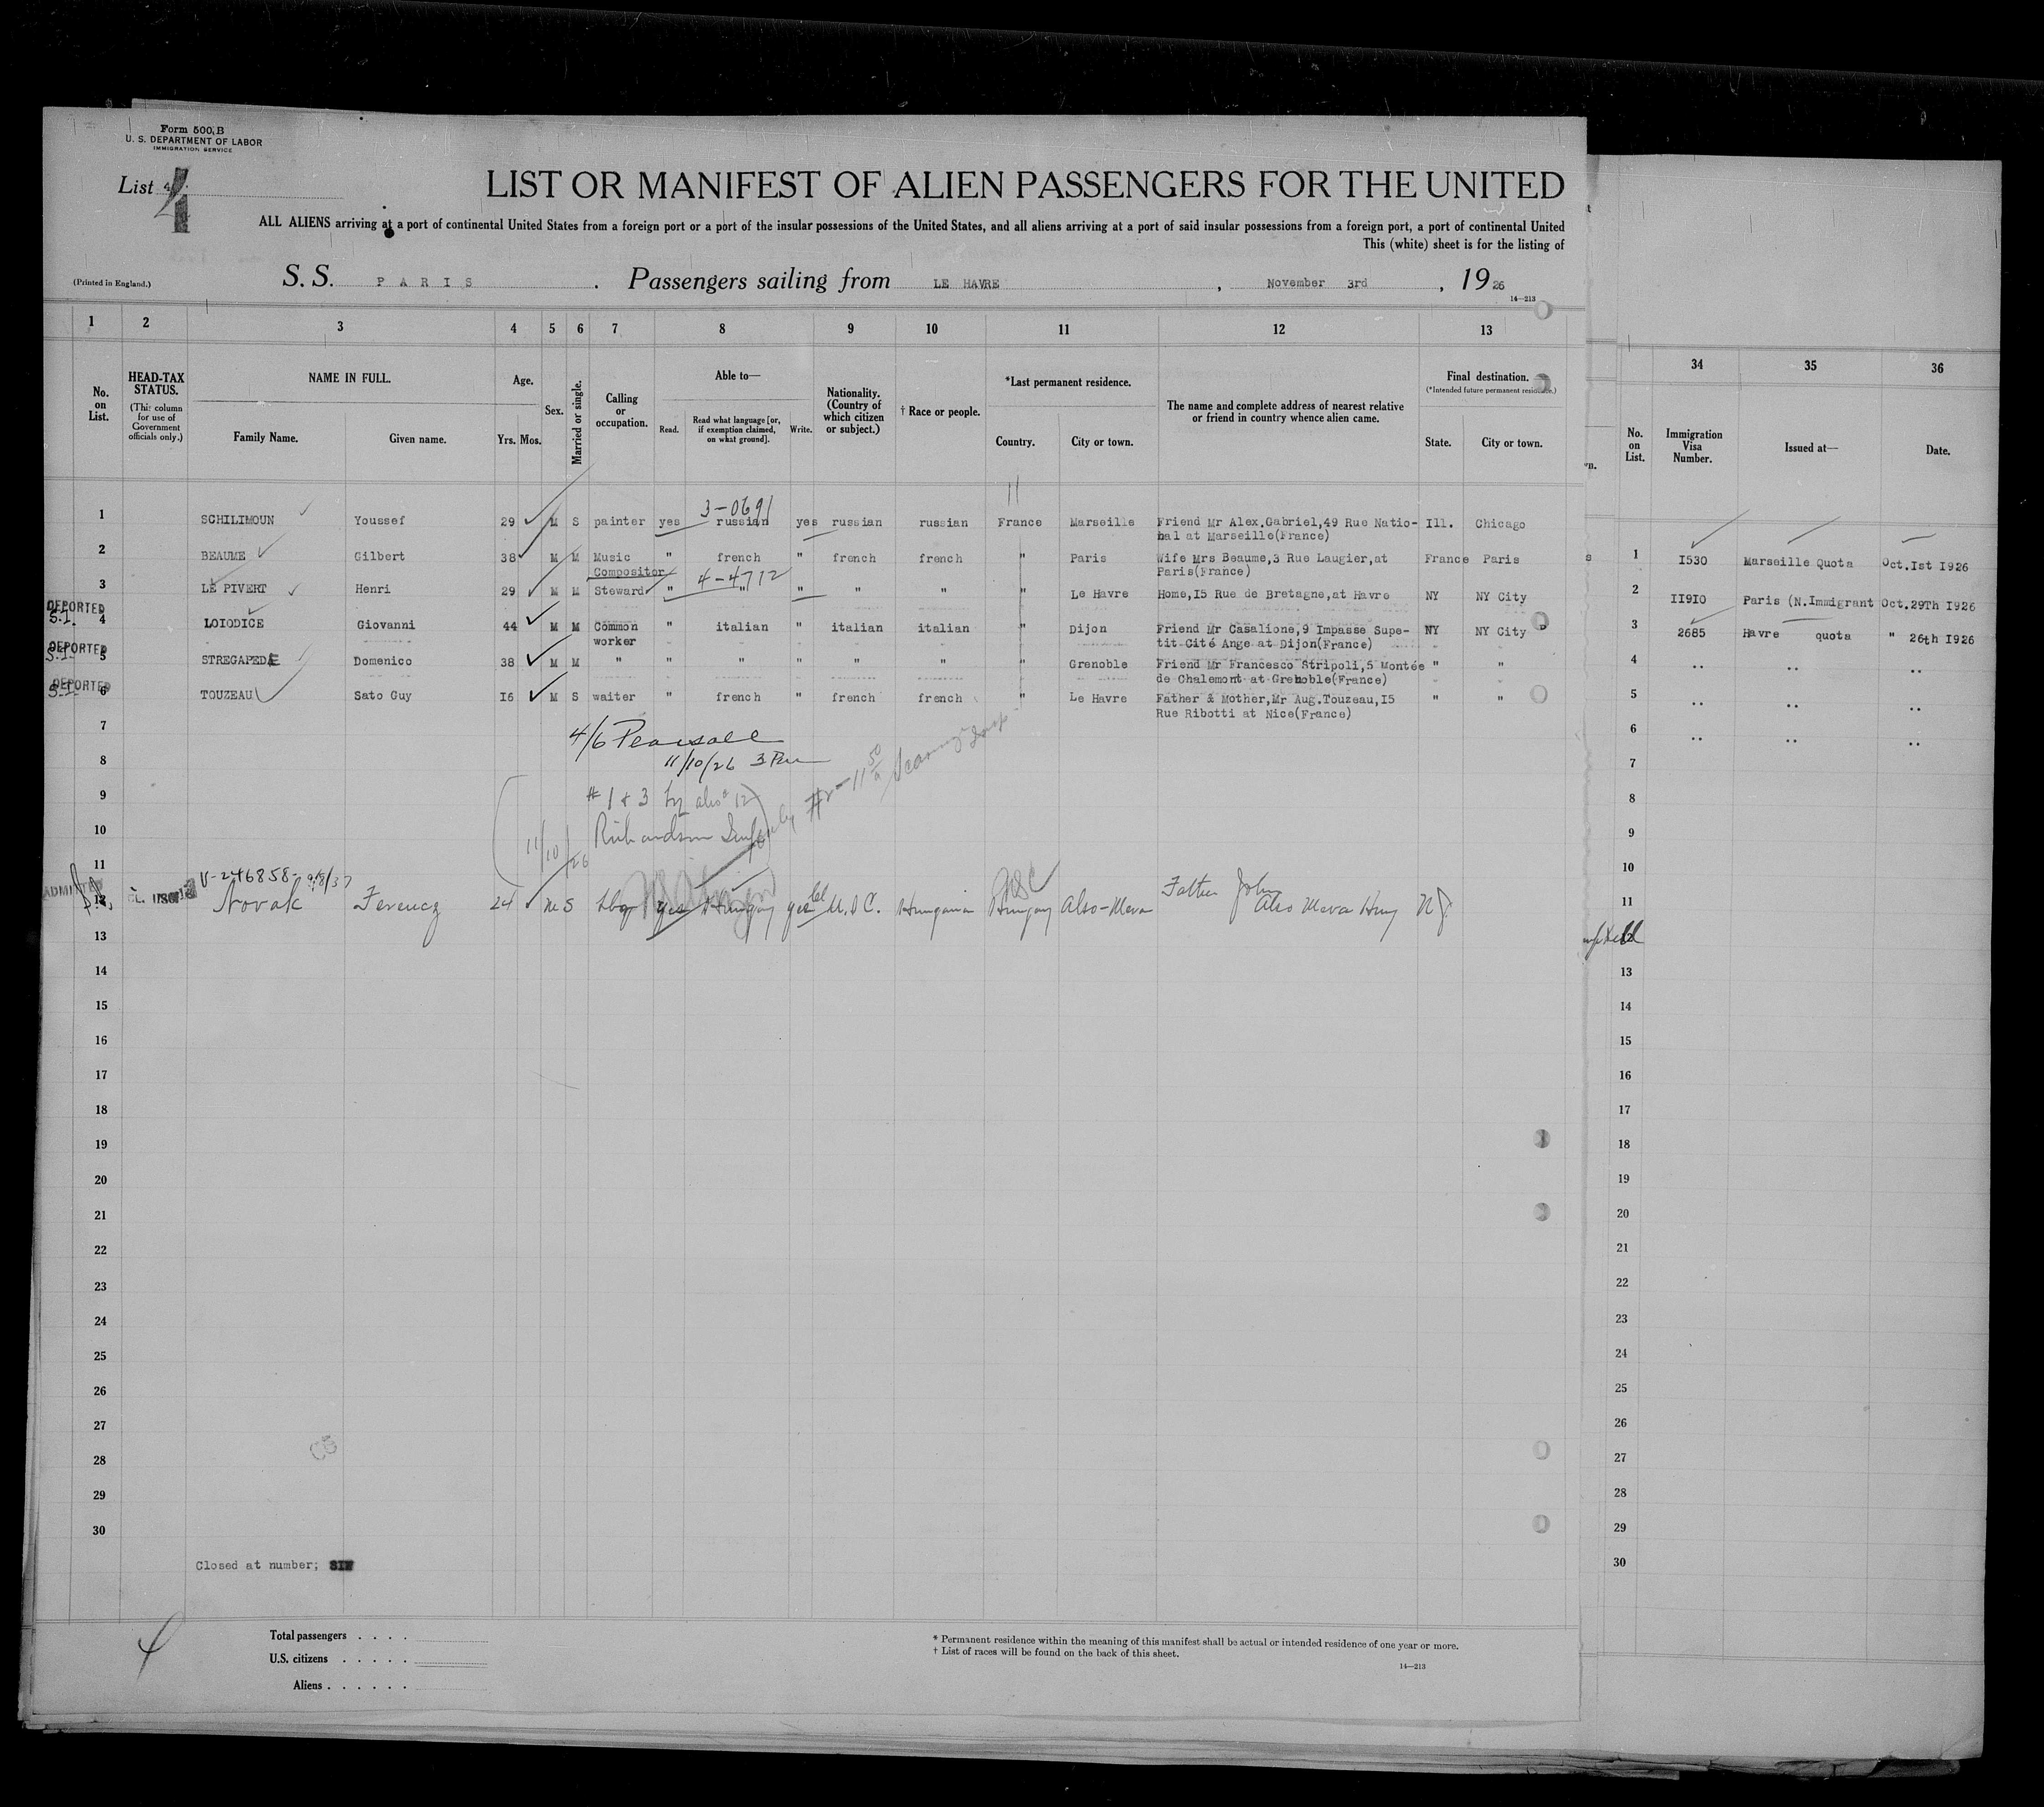 Form 500 B
U. S. DEPARTMENT OF LABOR
IMMIGRATION SERVICE
List 4
LIST OR MANIFEST OF ALIEN PASSENGERS FOR THE UNITED
ALL ALIENS arriving at a port of continental United States from a foreign port or a port of the insular possessions of the United States, and all aliens arriving at a port of said insular possessions from a foreign port, a port of continental United
This (white) sheet is for the listing of
(Printed in England.)
S. S. PARIS. Passengers sailing from LE HAVRE, November 3rd, 1926
14—213
1 2 3 4 5 6 7 8 9 10 11 12 13
No. on List.
HEAD-TAX STATUS.
(This column for use of Government officials only.)
NAME IN FULL.
Family Name. Given name.
Age.
Yrs. Mos.
Sex.
Married or single.
Calling or occupation.
Able to—
Read. Read what language [or, if exemption claimed, on what ground]. Write.
Nationality. (Country of which citizen or subject.)
† Race or people.
*Last permanent residence.
Country. City or town.
The name and complete address of nearest relative or friend in country whence alien came.
Final destination.
(*Intended future permanent residence.)
State. City or town.
34 35 36
No. on List.
Immigration Visa Number.
Issued at—
Date.
11
3-0691
1 SCHILIMOUN Youssef 29 M S painter yes russian yes russian russian France Marseille Friend Mr Alex.Gabriel,49 Rue Natio- Ill. Chicago
nal at Marseille(France)
2 BEAUME Gilbert 38 M M Music " french " french french " Paris Wife Mrs Beaume,3 Rue Laugier,at France Paris
Compositor Paris(France)
4-4712
3 LE PIVERT Henri 29 M M Steward " " " " " " Le Havre Home,I5 Rue de Bretagne,at Havre NY NY City
DEPORTED
S.I. 4 LOIODICE Giovanni 44 M M Common " italian " italian italian " Dijon Friend Mr Casalione,9 Impasse Supe- NY NY City
worker tit Cité Ange at Dijon(France)
DEPORTED
S.I. 5 STREGAPEDE Domenico 38 M M " " " " " " " Grenoble Friend Mr Francesco Stripoli,5 Montée " "
de Chalemont at Grenoble(France)
DEPORTED
S.I. 6 TOUZEAU Sato Guy I6 M S waiter " french " french french " Le Havre Father & Mother,Mr Aug.Touzeau,I5 " "
Rue Ribotti at Nice(France)
7
4/6 Pearsall
11/10/26 3 Pm
8
9
# 1 + 3
10
Richardson
11/10/26
11
V-246858- 9/8/37
ADMITTED
12 Novak Ferencz 24 M S yes Hungary yes Hungarian Hungary Also-Mera Father John
Also Mera Hung NJ.
13
14
15
16
17
18
19
20
21
22
23
24
25
26
27
28
29
30
Closed at number; SIX
4
Total passengers . . . .
U.S. citizens . . . . .
Aliens . . . . . .
* Permanent residence within the meaning of this manifest shall be actual or intended residence of one year or more.
† List of races will be found on the back of this sheet.
14—213
1 I530 Marseille Quota Oct.Ist I926
2 II9I0 Paris (N.Immigrant Oct.29Th I926
3 2685 Havre quota " 26th I926
4 .. .. ..
5 .. .. ..
6 .. .. ..
7
8
9
10
11
12
13
14
15
16
17
18
19
20
21
22
23
24
25
26
27
28
29
30